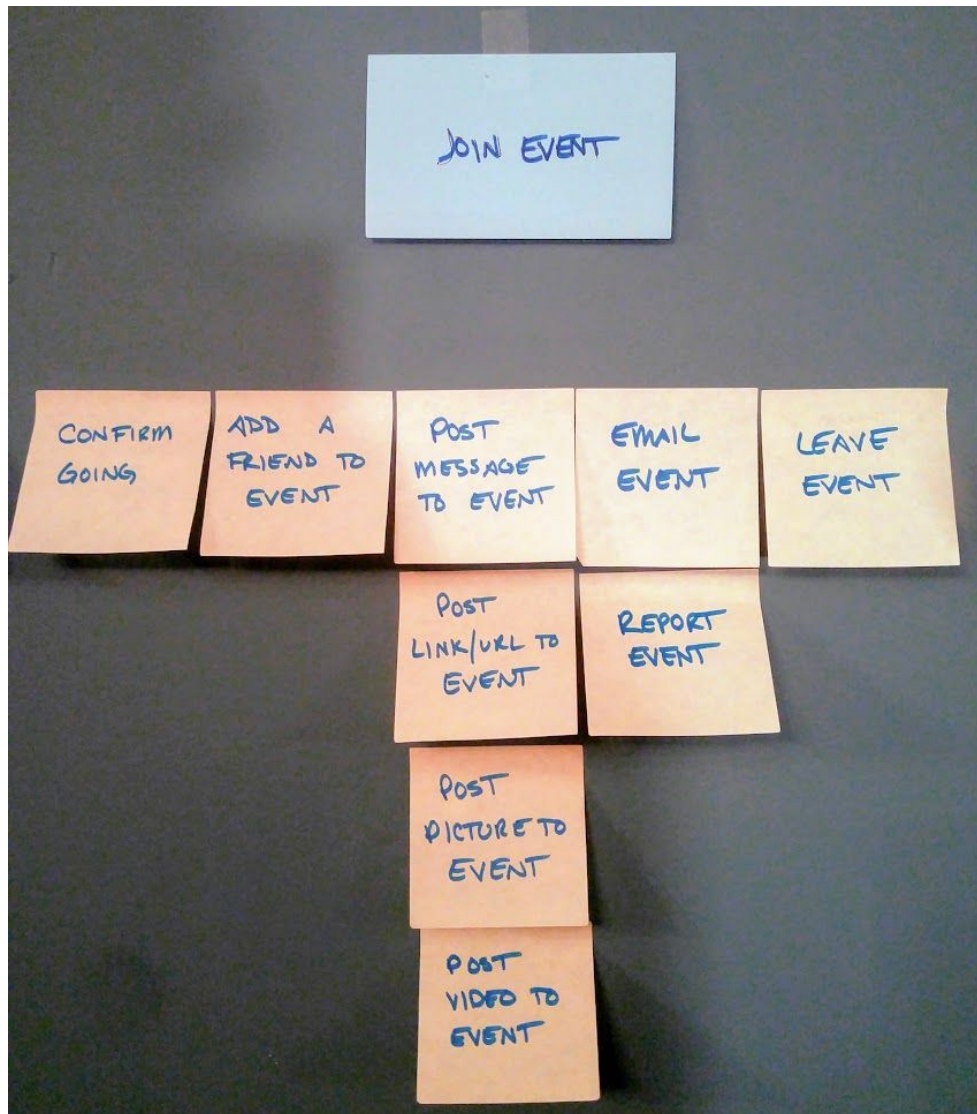 JOIN EVENT
CONFIRM
GOING
ADD A
FRIEND TO
EVENT
POST
MESSAGE
TO EVENT
EMAIL
EVENT
LEAVE
EVENT
POST
LINK/URL TO
EVENT
REPORT
EVENT
POST
PICTURE TO
EVENT
POST
VIDEO TO
EVENT